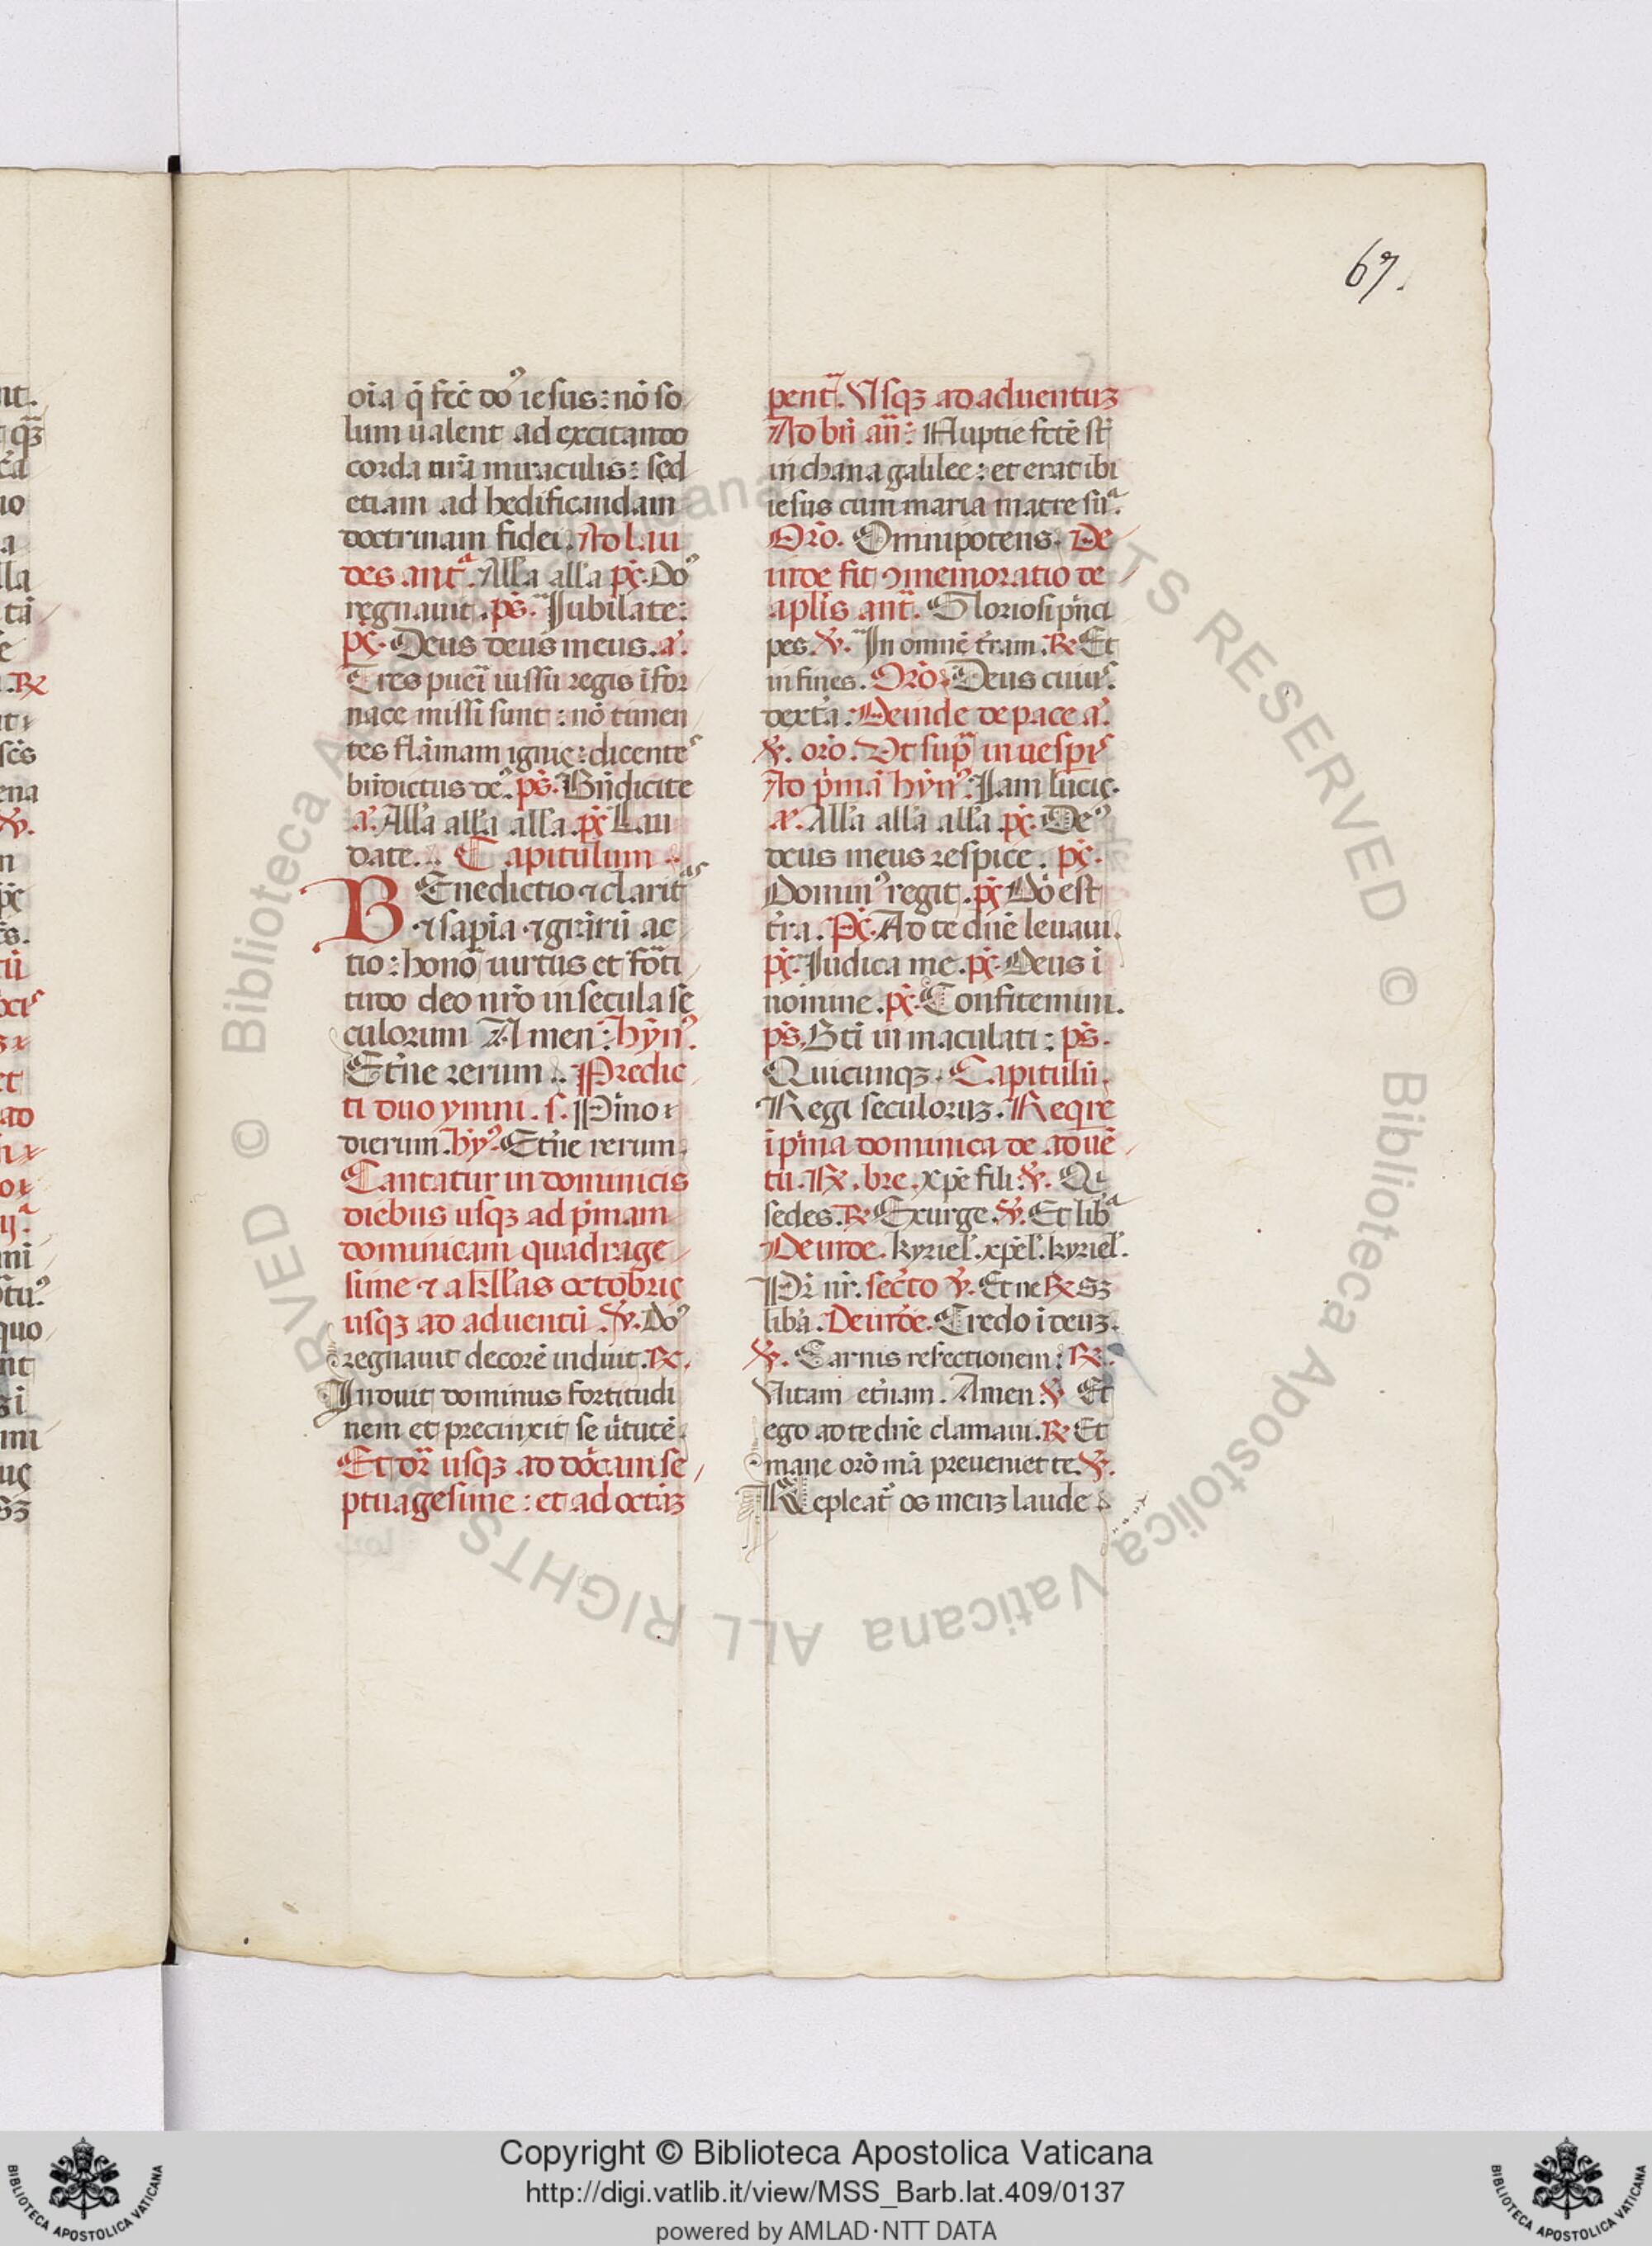 67.
oīa q̄ fec̄ do᷒ iesus: nō so
lum ualent ad excitando
corda nr̄a miraculis: sed
etiam ad hedificandam
doctrinam fidei. Ad lau
des antᵃ. All'a all'a pȝ. Do᷒
regnauit. ps̄. Jubilate:
pȝ. Deus deus meus. a͛.
Tres pueī iussu regis ī for
nace missi sunt: nō timen
tes flāmam ignis: dicente᷒
bn̄dictus de᷒. ps̄. Bn̄dicite
a͛. All'a all'a all'a. pȝ Lau
date. Capitulum
BEnedictio ⁊ clarit᷒
⁊ sapīa ⁊ gr̄arū ac
tio: hono͛ uirtus et fo͛ti
tudo deo nr̄o in secula se
culorum Amen: hȳn᷒.
Et͛ne rerum. Predic
ti duo ymni. s. P͛mo
dierum. hy᷒. Et͛ne rerum.
Cantatur in dominicis
diebus usqȝ ad p͛mam
dominicam quadrage
sime ⁊ a kll'as octobris
usqȝ ad aduentū. ℣. Do᷒
regnauit decorē induit. ℟.
Induit dominus fortitudi
nem et precinxit se u͛tutē.
Et dr̄ usqȝ ad dōcam se
ptuagesime: et ad octaȝ
pent͛. Usqȝ ad aduentuȝ
Ad bn̄ an̄: Nuptie fctē st̄
in chana galilee: et erat ibi
iesus cum maria matre suᵃ.
Orō. Omnipotens. De
inde fit ꝯmemoratio de
aplis ant͛. Gloriosi p͛nci
pes. ℣. In omnē t͛ram. ℟ Et
in fines. Orō. Deus cuiu᷒.
dext͛a: Deinde de pace a͛.
℣. orō. Ut sup͛ in uesp͛i᷒
Ad p͛mā hȳn᷒. Jam lucis.
a͛. All'a all'a all'a. pȝ. De᷒
deus meus respice. pȝ.
Domin᷒ regit. pȝ Dō est
t͛ra. Pȝ. Ad te dn̄e leuaui.
pȝ. Judica me. pȝ. Deus ī
nomine. pȝ. Confitemini.
ps̄. Bt̄i inmaculati: ps̄.
Quicunqȝ. Capitulū.
Regi seculoruȝ. Reqͥre
ī p͛ma dominica de aduē
tu. ℟. bre. xp̄e fili. ℣. Qͥ
sedes. ℟ Exurge. ℣. Et libᵃ
Deinde. kyriel'. xp̄el'. kyriel'.
Pr̄ nr̄. sec͛to ℣. Et ne ℟ Sȝ
liba͛. Deinde. Credo ī deuȝ.
℣. Carnis refectionem: ℟.
Uitam et͛nam. Amen. ℣ Et
ego ad te dn̄e clamaui. ℟ Et
mane orō mā preueniet te. ℣.
Repleat͛ os meuȝ laude
Copyright © Biblioteca Apostolica Vaticana
http://digi.vatlib.it/view/MSS_Barb.lat.409/0137
powered by AMLAD·NTT DATA